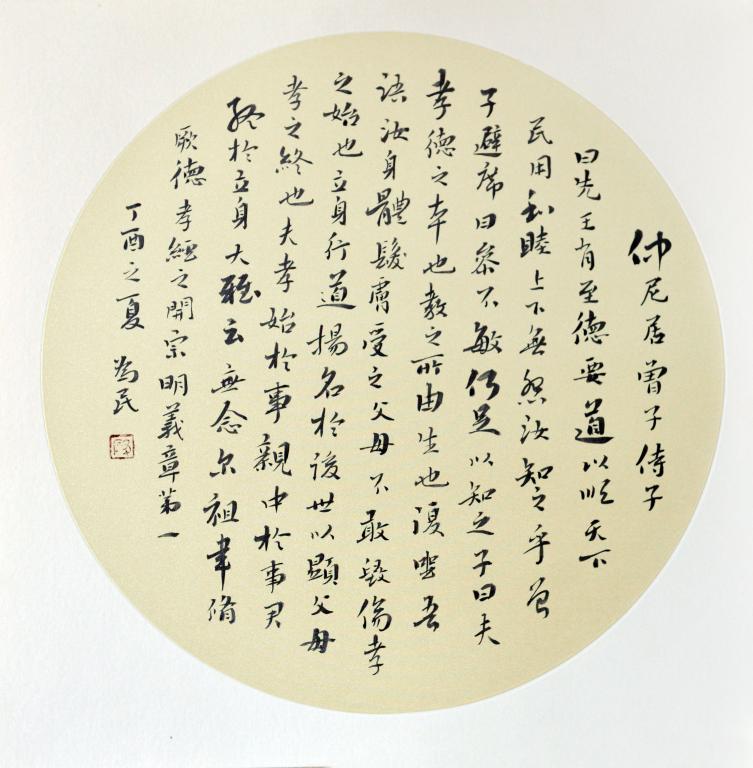 仲尼居曾子侍子
曰先王有至德要道以順天下
民用和睦上下無怨汝知之乎曾
子避席曰參不敏何足以知之子曰夫
孝德之本也教之所由生也復坐吾
語汝身體髮膚受之父母不敢毀傷孝
之始也立身行道揚名於後世以顯父母
孝之終也夫孝始於事親中於事君
終於立身大雅云無念尔祖聿脩
厥德孝經之開宗明義章第一
丁酉之夏為民